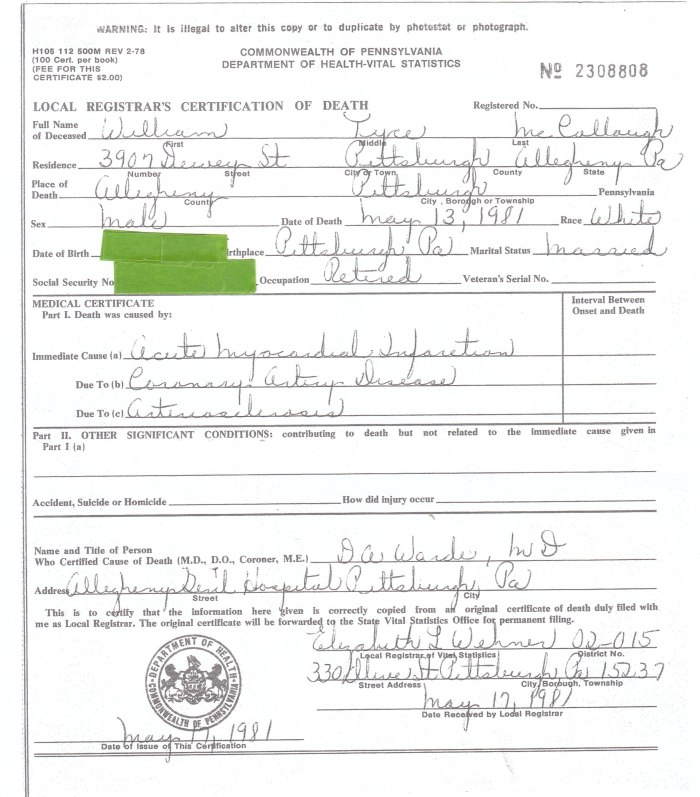 WARNING: It is illegal to alter this copy or to duplicate by photostat or photograph.
H105 112 500M REV 2-78
(100 Cert. per book)
(FEE FOR THIS
CERTIFICATE $2.00)
COMMONWEALTH OF PENNSYLVANIA
DEPARTMENT OF HEALTH-VITAL STATISTICS
Nº 2308808
LOCAL REGISTRAR'S CERTIFICATION OF DEATH Registered No.
Full Name of Deceased William Tyce McCullough
First Middle Last
Residence 3907 Dewey St Pittsburgh Allegheny Pa
Number Street City or Town County State
Place of Death Allegheny Pittsburgh Pennsylvania
County City, Borough or Township
Sex male Date of Death May 13, 1981 Race White
Date of Birth irthplace Pittsburgh Pa Marital Status married
Social Security No Occupation Retired Veteran's Serial No.
MEDICAL CERTIFICATE
Part I. Death was caused by:
Interval Between
Onset and Death
Immediate Cause (a) Acute Myocardial Infarction
Due To (b) Coronary Artery Disease
Due To (c) Arteriosclerosis
Part II. OTHER SIGNIFICANT CONDITIONS: contributing to death but not related to the immediate cause given in
Part I (a)
Accident, Suicide or Homicide How did injury occur
Name and Title of Person
Who Certified Cause of Death (M.D., D.O., Coroner, M.E.) D A Warde, MD
Address Allegheny Genl Hospital Pittsburgh, Pa
Street City
This is to certify that the information here given is correctly copied from an original certificate of death duly filed with
me as Local Registrar. The original certificate will be forwarded to the State Vital Statistics Office for permanent filing.
Elizabeth L Wehner 02-015
Local Registrar of Vital Statistics District No.
330 St Pittsburgh Pa 15237
Street Address City, Borough, Township
May 17, 1981
Date Received by Local Registrar
DEPARTMENT OF HEALTH
COMMONWEALTH OF PENNSYLVANIA
May 17, 1981
Date of Issue of This Certification